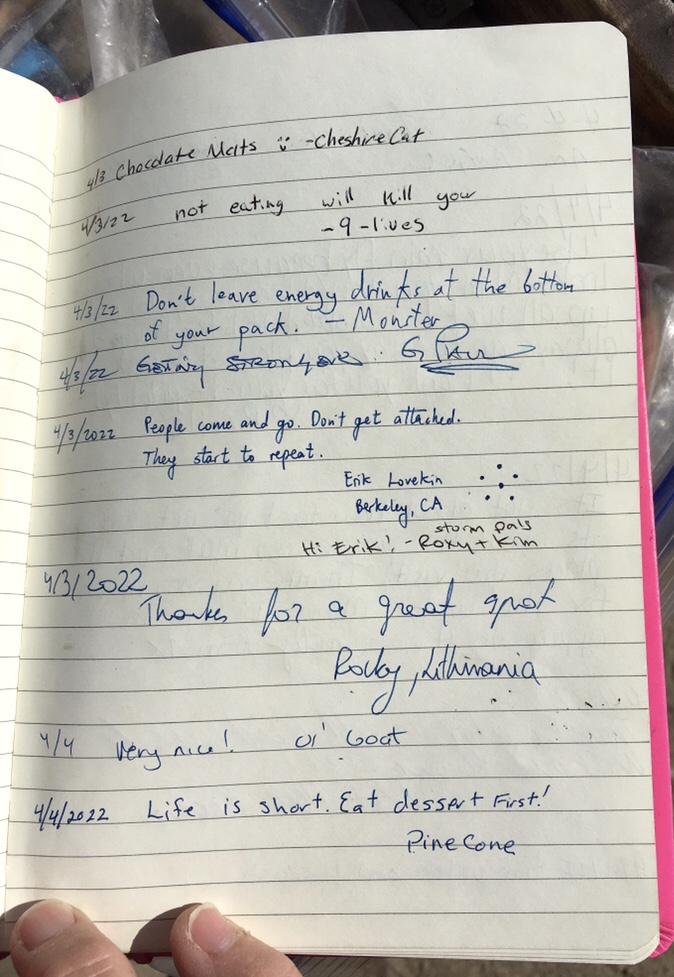 4/3 Chocolate Melts :) -Cheshire Cat
4/3/22 not eating will kill you
-9-lives
4/3/22 Don't leave energy drinks at the bottom
of your pack. - Monster
4/3/22 Getting stronger
4/3/2022 People come and go. Don't get attached.
They start to repeat.
Erik Lovekin
Berkeley, CA
storm pals
Hi Erik! - Roxy + Kim
4/3/2022
Thanks for a great spot
Rocky, Lithuania
4/4 Very nice! Ol' Goat
4/4/2022 Life is short. Eat dessert First!
PineCone